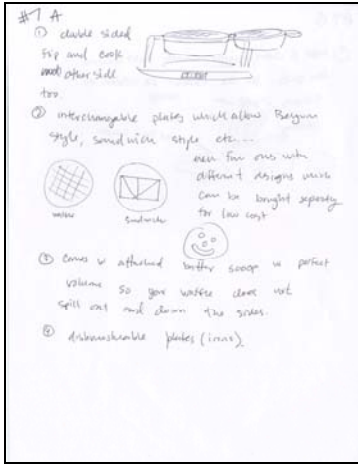 #7 A
① double sided
flip and cook
other side
too
② interchangeable plates which allow Belgium
style, sandwich style etc...
even fun ones with
different designs which
can be bought separately
for low cost
waffle
sandwich
③ comes w attached batter scoop w perfect
volume so your waffle does not
spill out and down the sides.
④ dishwasherable plates (irons)